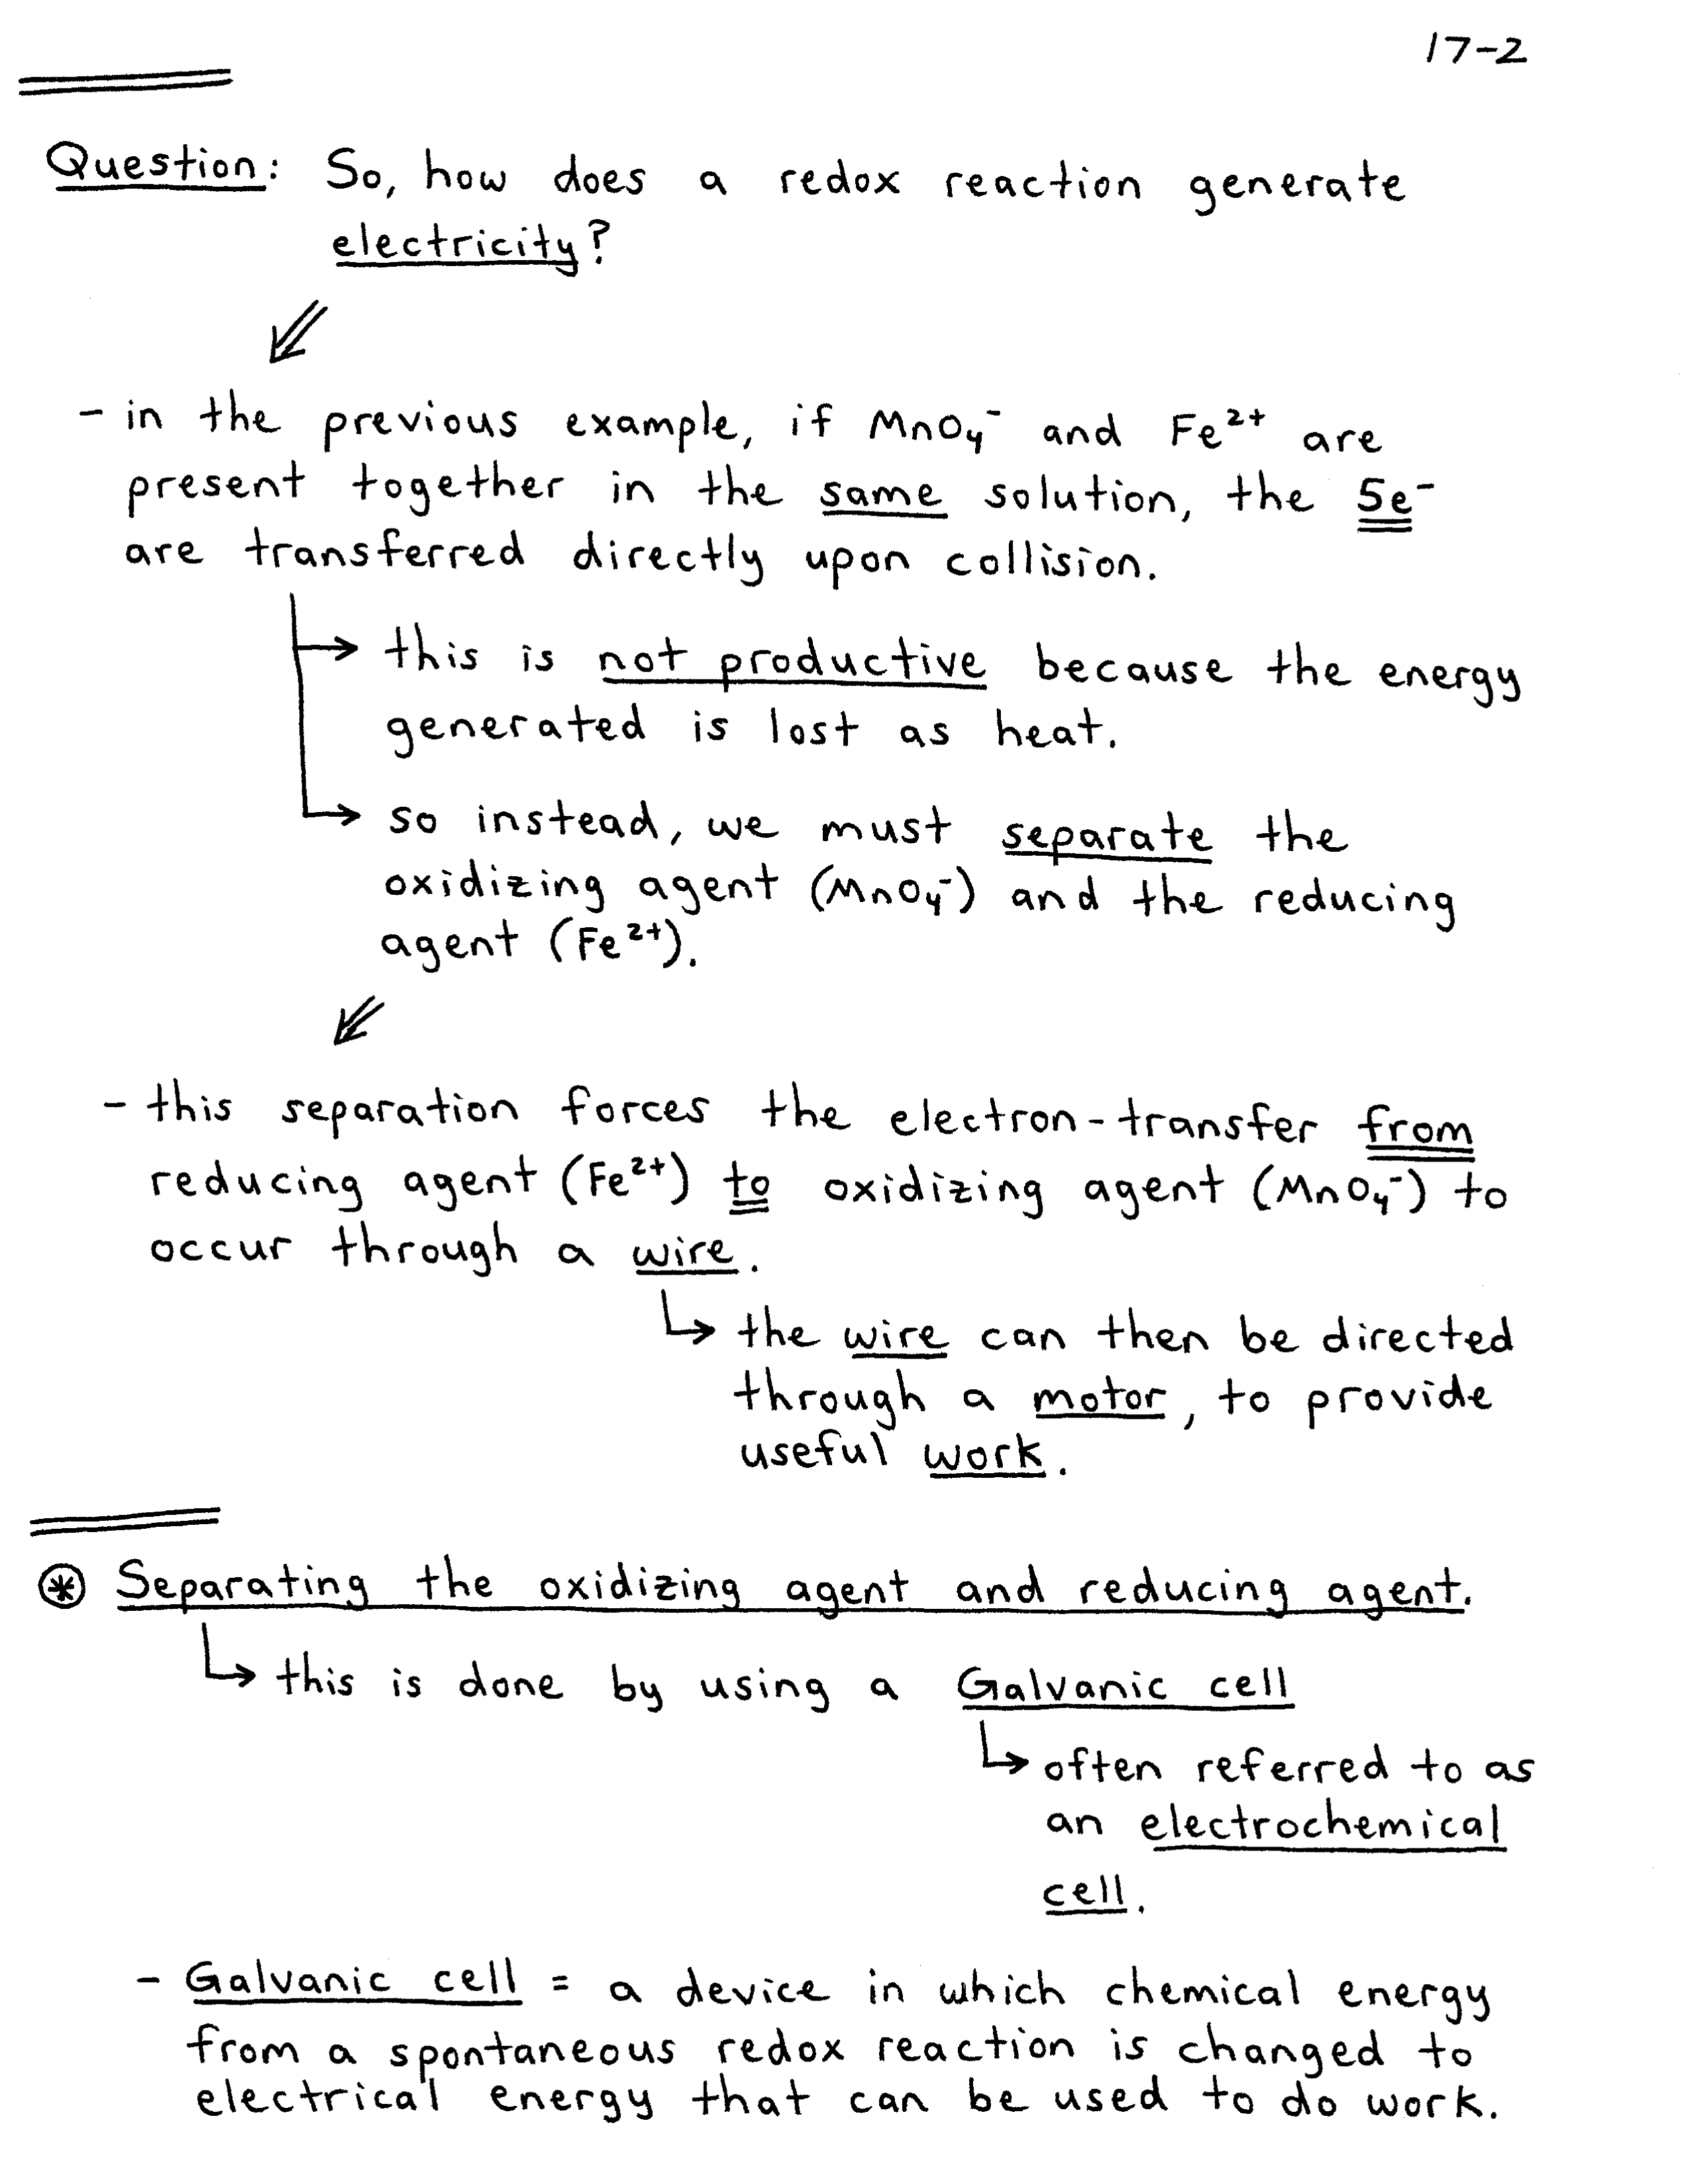 17-2
Question: So, how does a redox reaction generate
electricity?
- in the previous example, if MnO₄⁻ and Fe²⁺ are
present together in the same solution, the 5e⁻
are transferred directly upon collision.
→ this is not productive because the energy
generated is lost as heat.
→ so instead, we must separate the
oxidizing agent (MnO₄⁻) and the reducing
agent (Fe²⁺).
- this separation forces the electron-transfer from
reducing agent (Fe²⁺) to oxidizing agent (MnO₄⁻) to
occur through a wire.
↳ the wire can then be directed
through a motor, to provide
useful work.
⊛ Separating the oxidizing agent and reducing agent.
↳ this is done by using a Galvanic cell
↳ often referred to as
an electrochemical
cell.
- Galvanic cell = a device in which chemical energy
from a spontaneous redox reaction is changed to
electrical energy that can be used to do work.